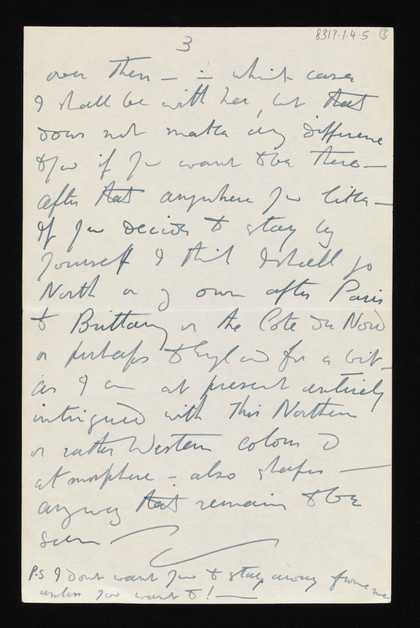 8317.1.4.5
3
over then – in which case
I shall be with her, but that
does not make any difference
to you if you want to be there –
after that anywhere you like –
If you decide to stay by
yourself I think I shall go
North on my own after Paris
to Brittany or the Cote du Nord
or perhaps to England for a bit –
as I am at present entirely
intrigued with this Northern
or rather Western colour &
atmosphere – also shapes –
anyway that remains to be
seen
P.S I don't want you to stay away from me
unless you want to! –